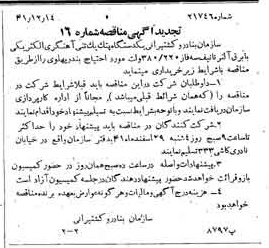 شماره ۲۱۷۴۶ ۴۱/۱۲/۱۴
تجدید آگهی مناقصه شماره ۱۶
سازمان بنادر و کشتیرانی یکدستگاه پتک پشتی آهنگری الکتریکی
با برق آلترناتیف سه فاز ۳۸۰/۲۲۰ ولت مورد احتیاج بندر پهلوی را از طریق
مناقصه با شرایط زیر خریداری مینماید
۱ـ داوطلبان شرکت در این مناقصه باید قبلا شرایط شرکت در
مناقصه را (که همان شرائط قبلی میباشد) مجاناً از اداره کارپردازی
سازمان دریافت نمایند و با توجه به شرایط نسبت به تسلیم پیشنهاد خود اقدام نمایند
۲ـ شرکت کنندگان در مناقصه باید پیشنهاد خود را حداکثر
تا ساعت ۹ صبح روز شنبه ۲۹ اسفند ماه ۴۱ به دفتر سازمان واقع در خیابان
نادری کاشی ۳۳۳ تسلیم نمایند
۳ـ پیشنهادات واصله در ساعت ده صبح همان روز در حضور کمیسیون
باز و قرائت خواهد شد حضور پیشنهاد دهندگان در جلسه کمیسیون آزاد است
۴ـ هزینه درج آگهی و مالیات و هرگونه عوارض بعهده برنده مناقصه
خواهد بود
سازمان بنادر و کشتیرانی
۸۷۹۷ب ۲-۲